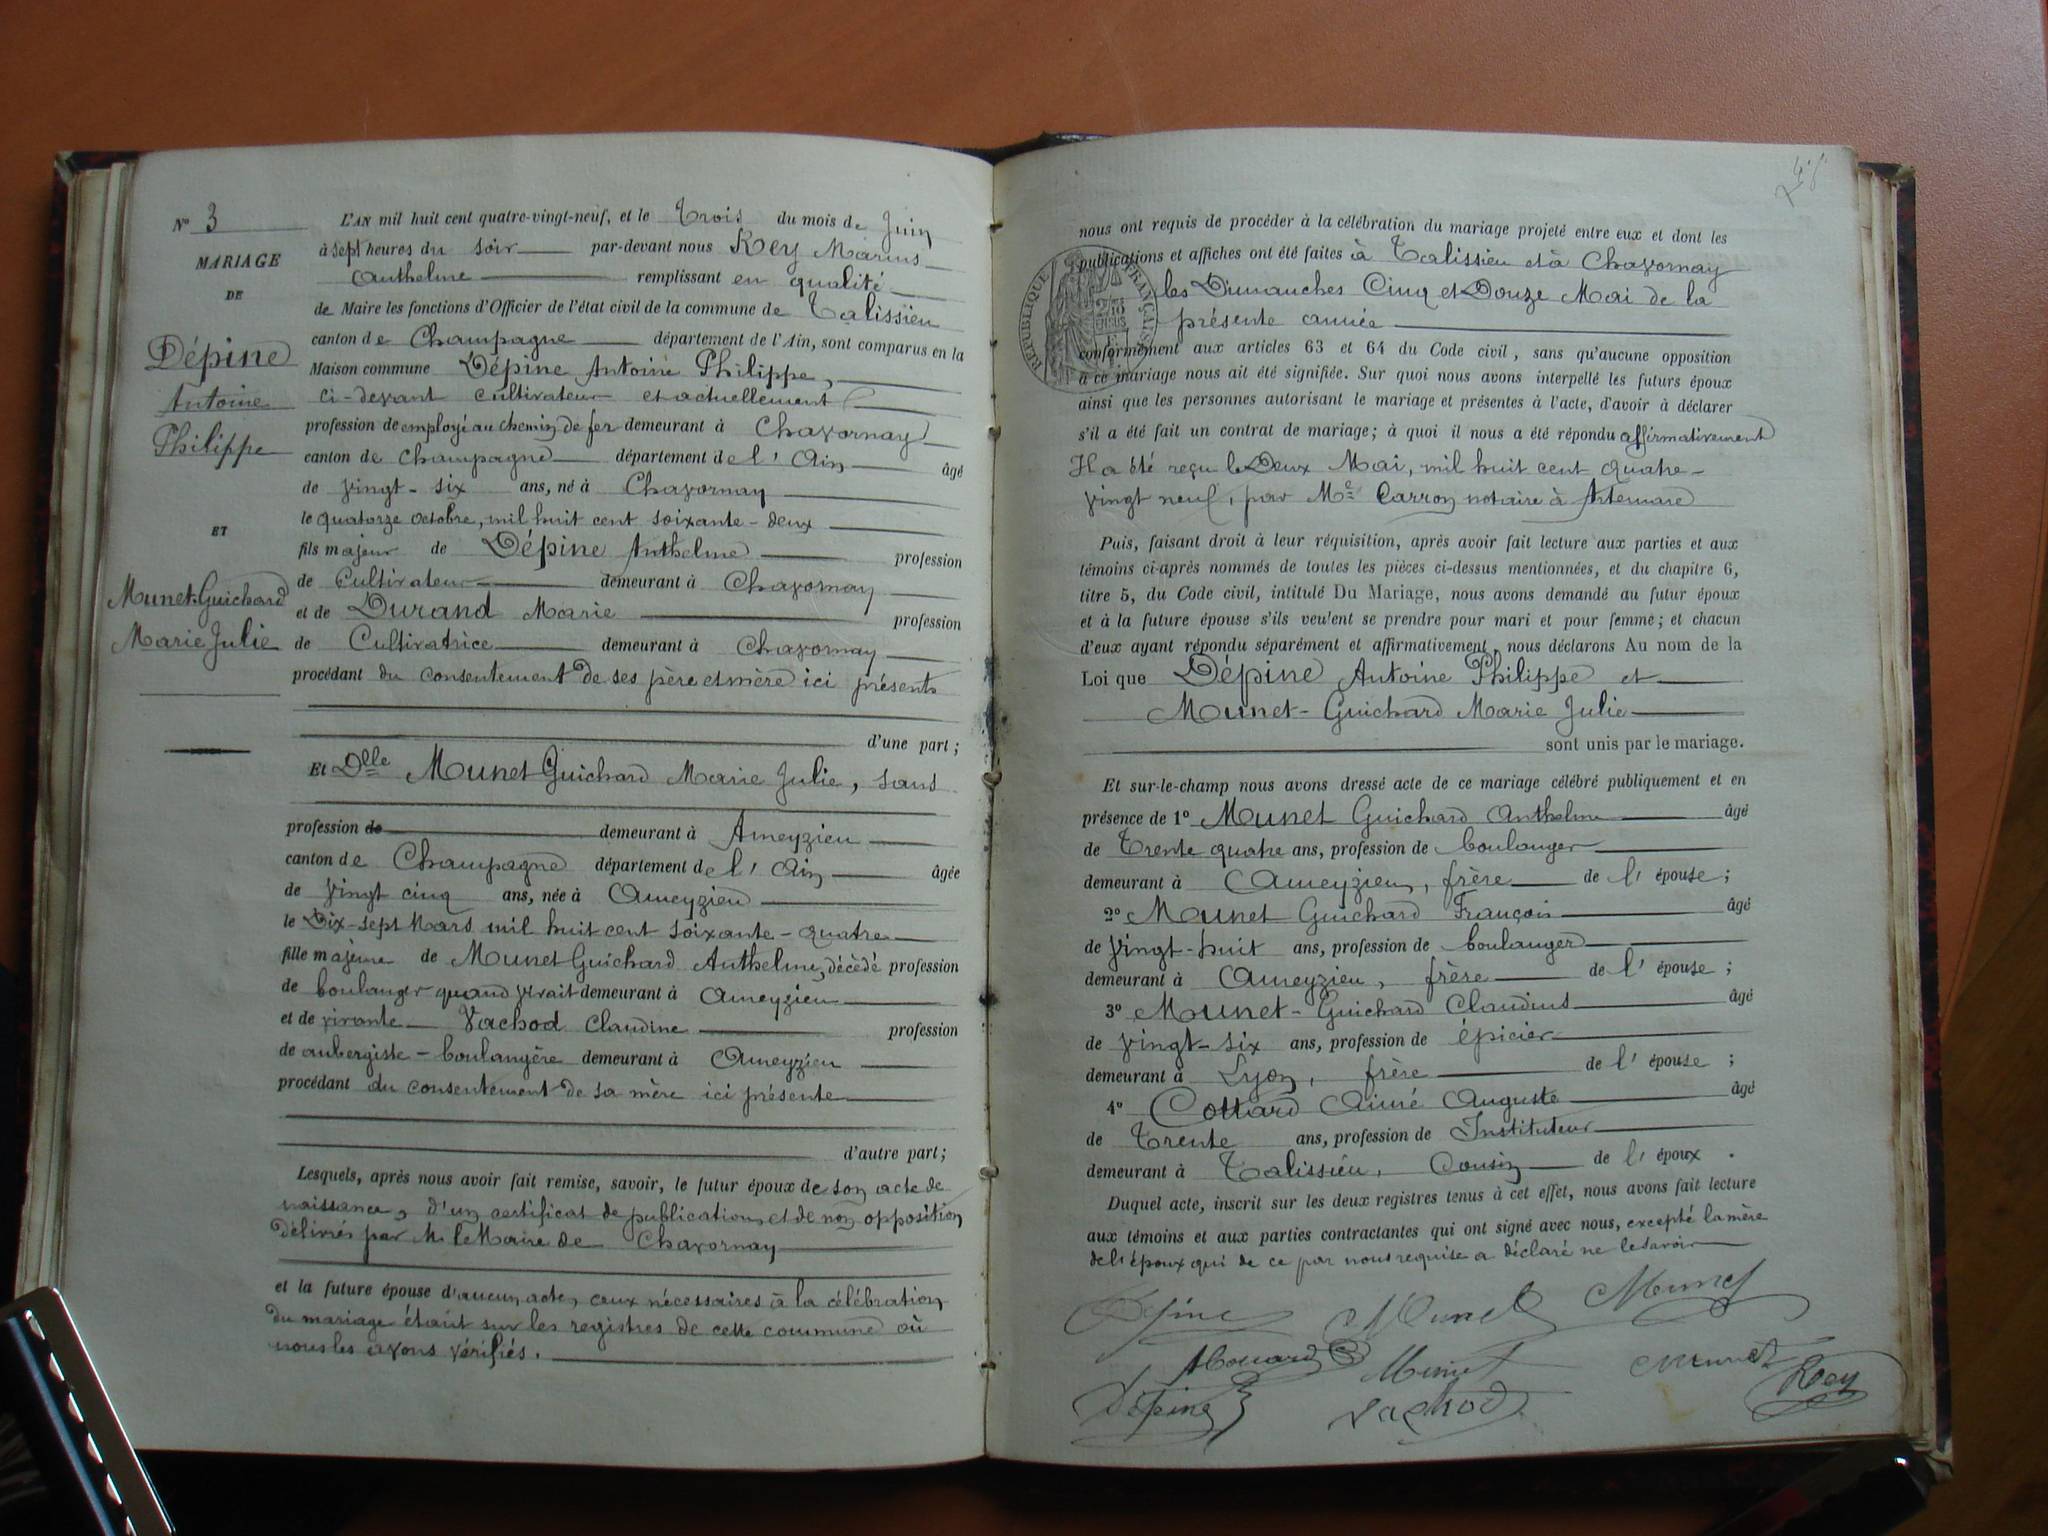 N° 3
MARIAGE
DE
Dépine
Antoine
Philippe
ET
Munet-Guichard
Marie Julie
L'AN mil huit cent quatre-vingt-neuf, et le Trois du mois de Juin
à sept heures du soir par-devant nous Rey Marius
Anthelme remplissant en qualité
de Maire les fonctions d'Officier de l'état civil de la commune de Talissieu
canton de Champagne département de l'Ain, sont comparus en la
Maison commune Dépine Antoine Philippe,
ci-devant cultivateur et actuellement
profession de employé au chemin de fer demeurant à Chavornay
canton de Champagne département de l'Ain âgé
de vingt-six ans, né à Chavornay
le quatorze octobre, mil huit cent soixante-deux
fils majeur de Dépine Anthelme profession
de Cultivateur demeurant à Chavornay
et de Durand Marie profession
de Cultivatrice demeurant à Chavornay
procédant du consentement de ses père et mère ici présents
d'une part ;
Et Dlle Munet Guichard Marie Julie, sans
profession de demeurant à Ameyzieu
canton de Champagne département de l'Ain âgée
de vingt cinq ans, née à Ameyzieu
le Dix-sept Mars mil huit cent soixante-quatre
fille majeure de Munet Guichard Anthelme, décédé profession
de boulanger quand vivait demeurant à Ameyzieu
et de vivante Vachod Claudine profession
de aubergiste-boulangère demeurant à Ameyzieu
procédant du consentement de sa mère ici présente
d'autre part ;
Lesquels, après nous avoir fait remise, savoir, le futur époux de son acte de
naissance, d'un certificat de publication et de non opposition
délivrés par M. le Maire de Chavornay
et la future épouse d'aucun acte, ceux nécessaires à la célébration
du mariage étant sur les registres de cette commune où
nous les avons vérifiés.
nous ont requis de procéder à la célébration du mariage projeté entre eux et dont les
publications et affiches ont été faites à Talissieu et à Chavornay
les Dimanches Cinq et Douze Mai de la
présente année
RÉPUBLIQUE FRANÇAISE
conformément aux articles 63 et 64 du Code civil, sans qu'aucune opposition
à ce mariage nous ait été signifiée. Sur quoi nous avons interpellé les futurs époux
ainsi que les personnes autorisant le mariage et présentes à l'acte, d'avoir à déclarer
s'il a été fait un contrat de mariage ; à quoi il nous a été répondu affirmativement
Il a été reçu le Deux Mai, mil huit cent quatre-
vingt neuf, par Me Carron notaire à Artemare
Puis, faisant droit à leur réquisition, après avoir fait lecture aux parties et aux
témoins ci-après nommés de toutes les pièces ci-dessus mentionnées, et du chapitre 6,
titre 5, du Code civil, intitulé Du Mariage, nous avons demandé au futur époux
et à la future épouse s'ils veulent se prendre pour mari et pour femme ; et chacun
d'eux ayant répondu séparément et affirmativement, nous déclarons Au nom de la
Loi que Dépine Antoine Philippe et
Munet-Guichard Marie Julie
sont unis par le mariage.
Et sur-le-champ nous avons dressé acte de ce mariage célébré publiquement et en
présence de 1° Munet Guichard Anthelme âgé
de Trente quatre ans, profession de boulanger
demeurant à Ameyzieu, frère de l'épouse ;
2° Munet Guichard François âgé
de vingt-huit ans, profession de boulanger
demeurant à Ameyzieu, frère de l'épouse ;
3° Munet-Guichard Claudius âgé
de vingt-six ans, profession de épicier
demeurant à Lyon, frère de l'épouse ;
4° Cottard Aimé Auguste âgé
de Trente ans, profession de Instituteur
demeurant à Talissieu, Cousin de l'époux.
Duquel acte, inscrit sur les deux registres tenus à cet effet, nous avons fait lecture
aux témoins et aux parties contractantes qui ont signé avec nous, excepté la mère
de l'époux qui de ce par nous requise a déclaré ne le savoir
Dépine Munet Munet
Munet Munet Rey
Dépine Vachod